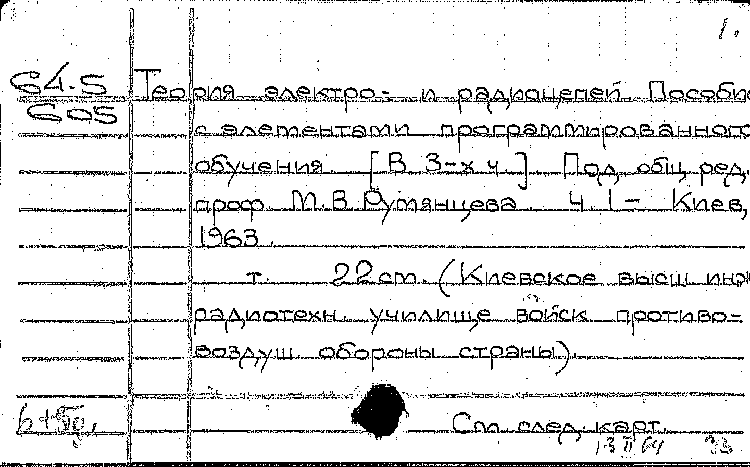 1.
64.5 Теория электро- и радиоцепей. Пособие
605 с элементами программированного
обучения. [В 3-х ч.]. Под общ. ред.
проф. М.В. Румянцева. Ч. 1 - Киев,
1963.
т. 22 см. (Киевское высш. инж.
радиотехн. училище войск противо-
воздуш. обороны страны).
См. след. карт.
13 II 64